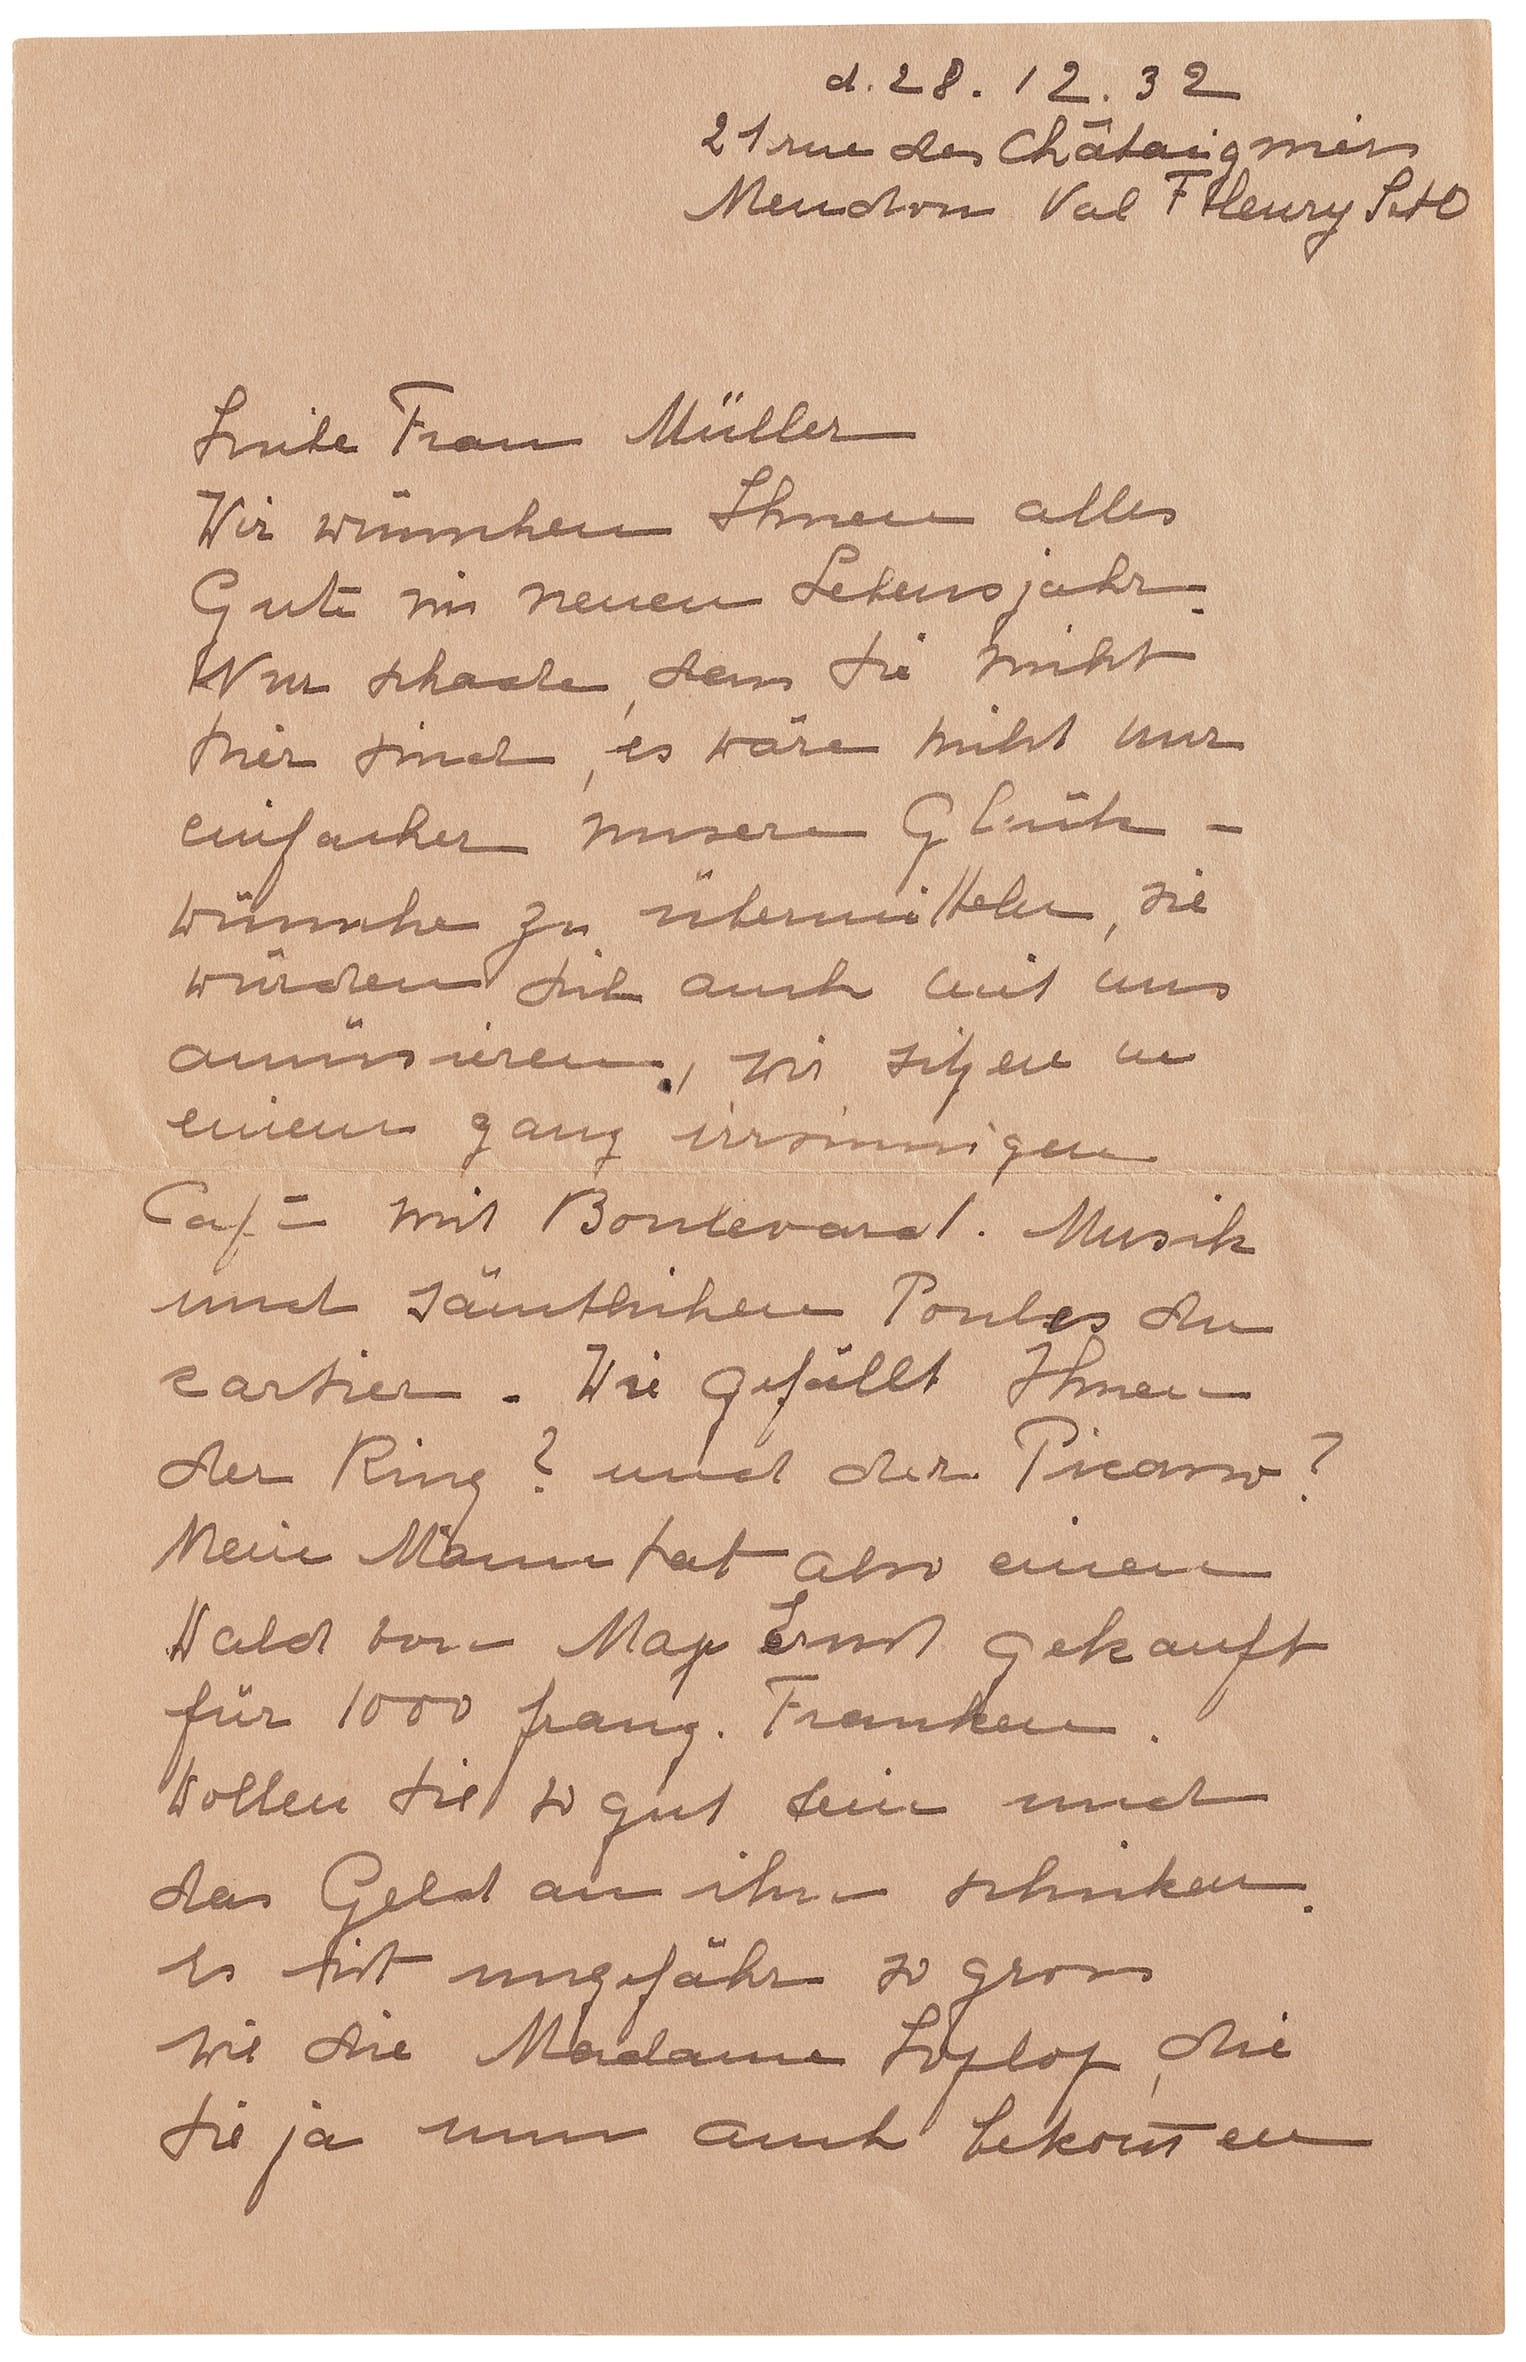 d. 28. 12. 32
21 rue des Châtaigniers
Meudon Val Fleury S et O
Liebe Frau Müller
Wir wünschen Ihnen alles
Gute im neuen Lebensjahr.
Nur schade, dass Sie nicht
hier sind, es wäre nicht nur
einfacher unsere Glück-
wünsche zu übermitteln, sie
würden sich auch mit uns
amüsieren, wir sitzen in
einem ganz irrsinnigen
Café mit Boulevard. Musik
und sämtlichen Poules du
cartier. Wie gefällt Ihnen
der Ring? und der Picasso?
Mein Mann hat also einen
Wald von Max Ernst gekauft
für 1000 franz. Franken.
Wollen Sie so gut sein und
das Geld an ihn schicken.
Es ist ungefähr so gross
wie die Madame Loplop, die
Sie ja nun auch bekom̅en